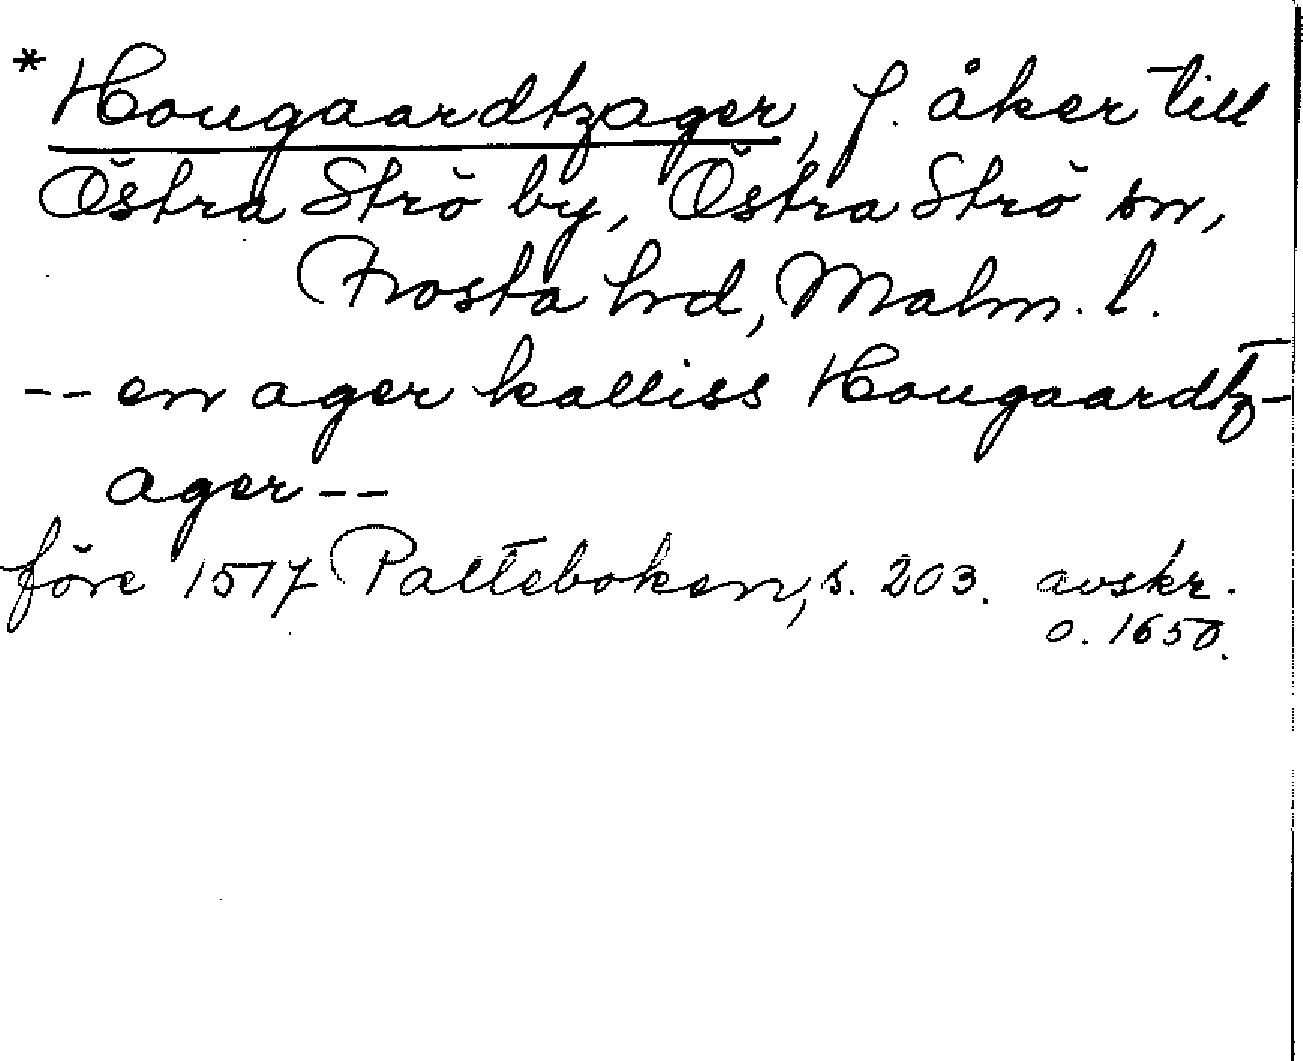 * Hougaardtzager, f. åker till
Östra Strö by, Östra Strö sn,
Frosta hrd, Malm. l.
-- en ager kalliss Hougaardtz-
ager --
före 1517 Palteboken, s. 203. avskr.
o. 1650.